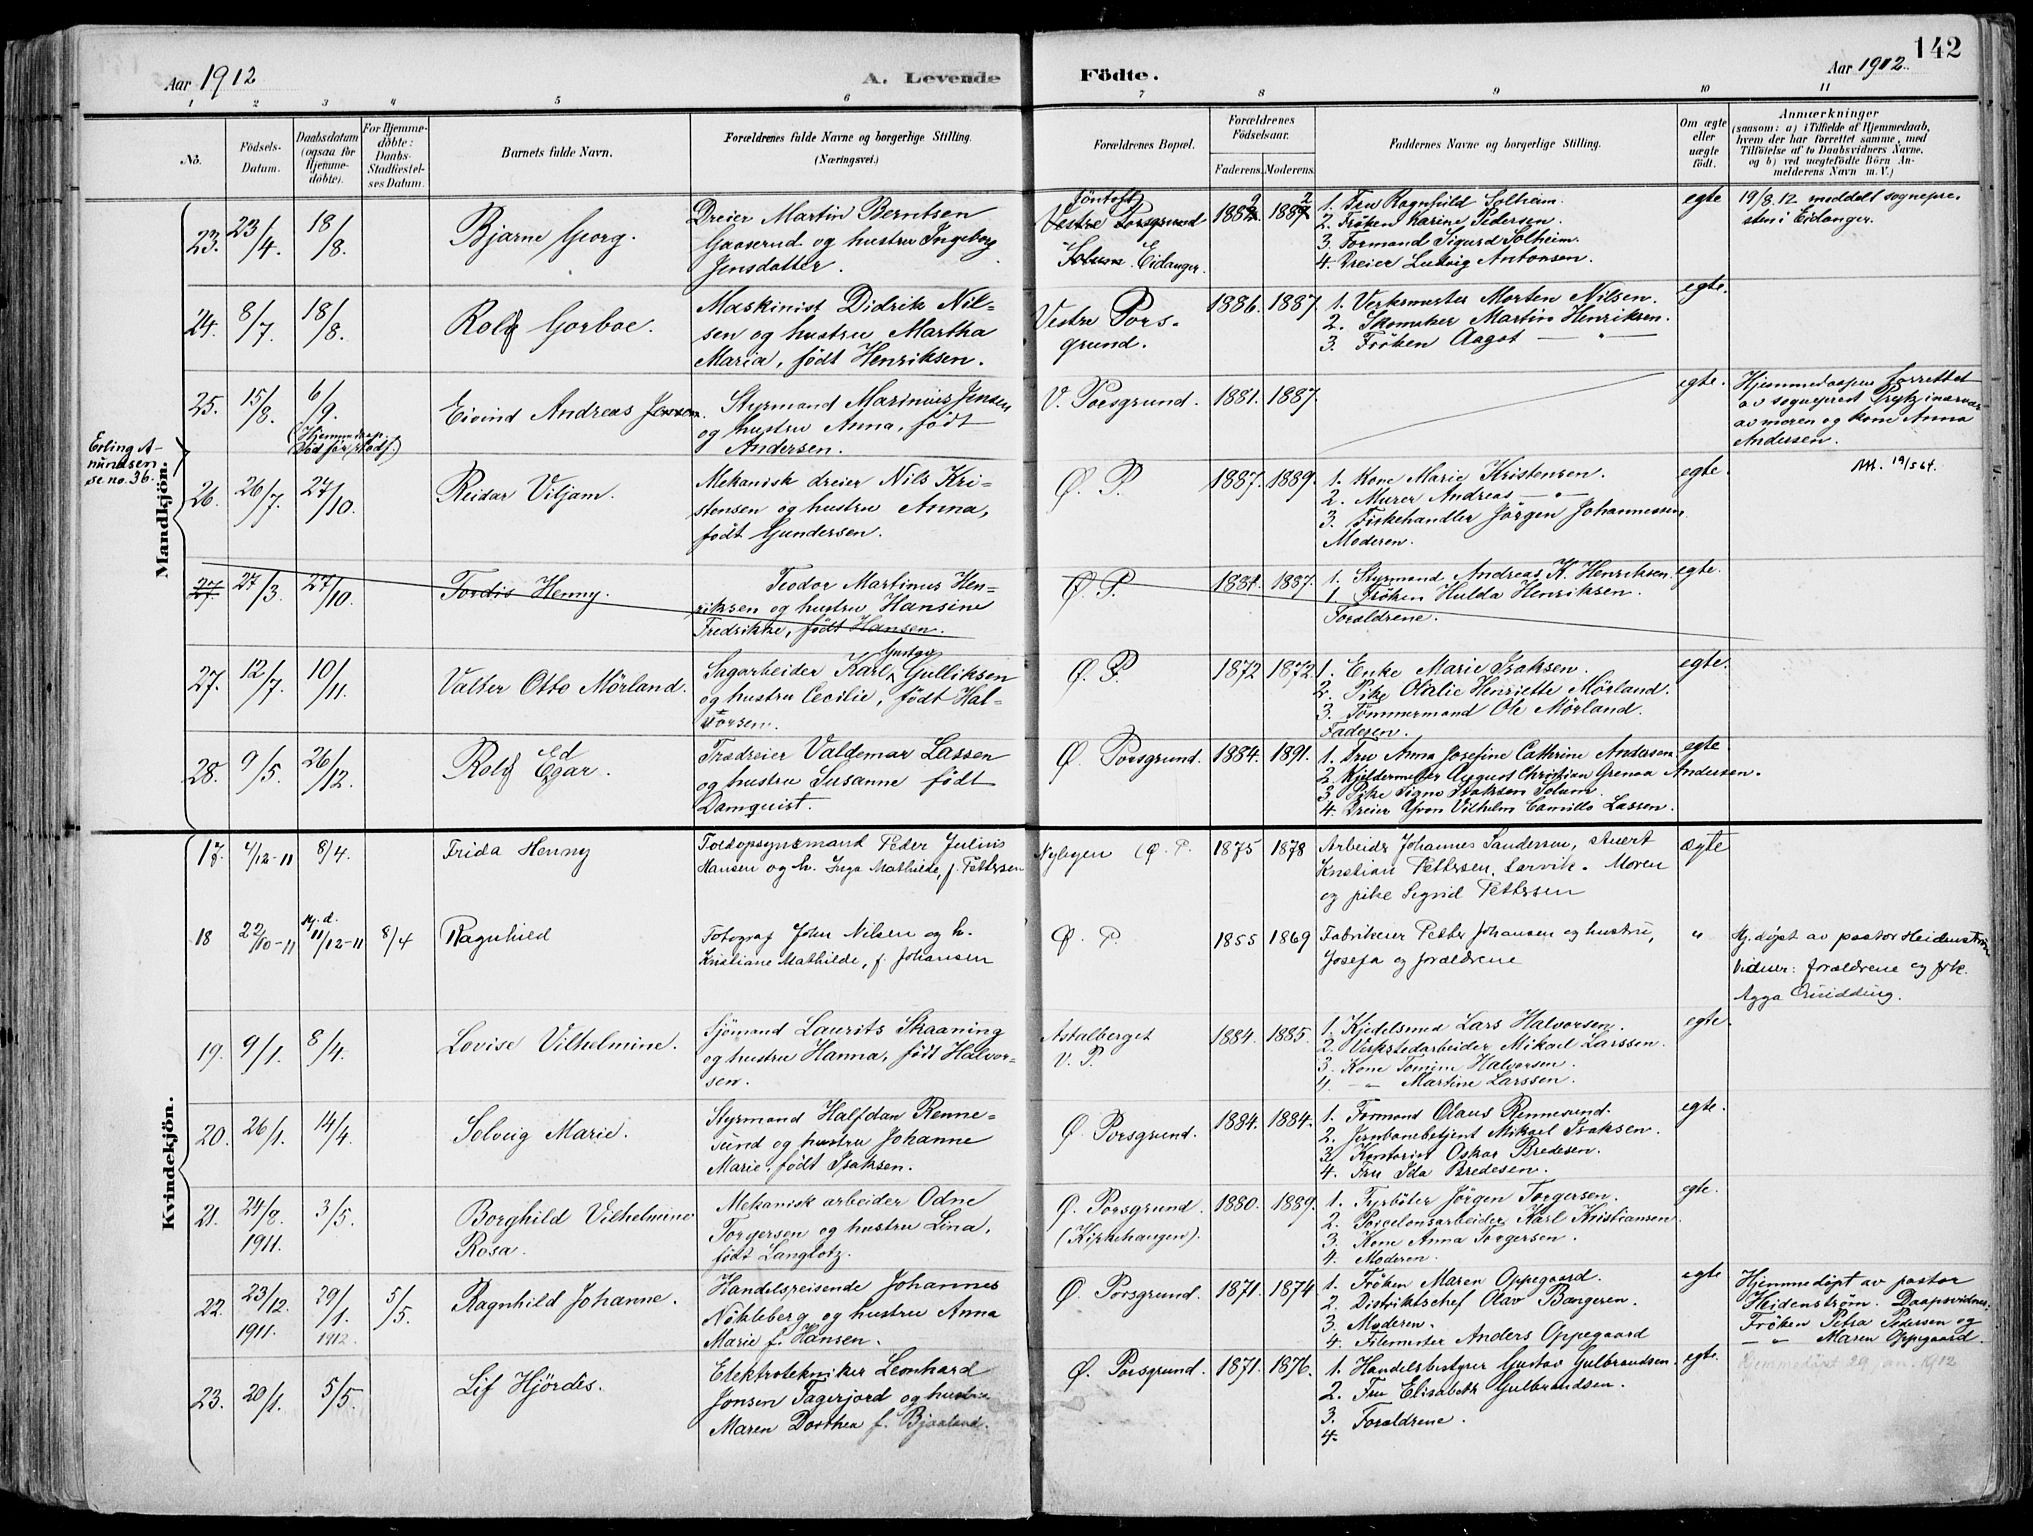 142
Aar 1912
A. Levende
Födte.
Aar 1912
1 2 3 4 5 6 7 8 9 10 11
No.
Födsels-
Datum.
Daabsdatum
(ogsaa for
Hjemme-
döbte).
For Hjemme-
döbte:
Daabs-
Stadfæstel-
ses Datum.
Barnets fulde Navn.
Forældrenes fulde Navne og borgerlige Stilling.
(Næringsvei.)
Forældrenes Bopæl.
Forældrenes
Födselsaar.
Faderens.
Moderens.
Faddernes Navne og borgerlige Stilling.
Om ægte
eller
uægte
födt.
Anmærkninger
(saasom: a) i Tilfælde af Hjemmedaab,
hvem der har forrettet samme, med
Tilföielse af to Daabsvidners Navne,
og b) ved uegtefödte Börn An-
melderens Navn m. V.)
Mandkjön.
Erling A-
mundsen
se no. 36.
23. 23/4. 18/8. Bjarne Georg.
Dreier Martin Berntsen
Gaaserud og hustru Ingeborg
Jensdatter.
Vestre Porsgrund
Solum. Eidanger.
1. Fru Ragnhild Solheim.
2. Frøken Karine Pedersen.
3. Formand Sigurd Solheim.
4. Dreier Ludvig Antonsen.
egte
19/8. 12 meddelt sognepre-
sten i Eidanger.
24. 8/7. 18/8. Rolf Gorboe.
Maskinist Didrik Nil-
sen og hustru Martha
Maria, født Henriksen.
Vestre Pors-
grund.
1886. 1887.
1. Verksmester Morten Nilsen.
2. Skomaker Martin Henriksen.
3. Frøken Aagot — " —
egte.
25. 15/8. 6/9. Eivind Andreas Jensen.
(Hjemmedøpt.
Død før stadf.)
Styrmand Marinius Jensen
og hustru Anna, født
Andersen.
V. Porsgrund. 1881. 1887.
egte.
Hjemmedaapen forrettet
av sogneprest Prytz i nærvær
av moren og kone Anna
Andersen.
26. 26/7. 27/10. Reidar Viljam.
Mekanisk dreier Nils Kri-
stensen og hustru Anna,
født Gundersen.
Ø. P. 1887. 1889.
1. Kone Marie Kristensen.
2. Murer Andreas — " —
3. Fiskehandler Jørgen Johannessen
Moderen.
egte.
19/5 64.
27. 27/3. 27/10. Tordis Henny.
Teodor Martinus Hen-
riksen og hustru Hansine
Fredrikke, født Hansen.
Ø. P. 1881. 1887.
1. Styrmand Andreas K. Henriksen.
1. Frøken Hulda Henriksen.
Forældrene.
egte.
27. 12/7. 10/11. Valter Otto Mörland.
Gustav
Sagarbeider Karl Gulliksen
og hustru Cecilie, født Hal-
vorsen.
Ø. P. 1872 1872.
1. Enke Marie Isaksen.
2. Pike Otalie Henriette Mörland.
3. Tömmermand Ole Mörland.
Faderen.
egte.
28. 9/5. 26/12. Rolf Edgar.
Trædreier Valdemar Lassen
og hustru Susanne født
Damquist.
Ø. Porsgrund. 1884. 1891.
1. Fru Anna Josefine Cathrine Andersen
2. Kjeldermester August Christian Grenaa Andersen.
3. Pike Signe Isaksen Solum.
4. Dreier Yvon Vilhelm Camillo Lassen.
egte
Kvindekjön.
17. 4/12-11 8/4. Frida Henny
Toldopsynsmand Peder Julius
Hansen og h. Inga Mathilde, f. Pettersen
Nybyen (Ø. P. 1875 1878
Arbeider Johannes Sandersen, stuert
Kristian Pettersen, Larvik. Moren
og pike Sigrid Pettersen
ægte
18 22/10-11 Hj. d. 11/12-11 8/4 Ragnhild
Fotograf John Nilsen og h.
Kristiane Mathilde, f. Johansen
Ø. P. 1855 1869
Fabrikeier Petter Johansen og hustru,
Josefa og forældrene
"
Hj. døpt av pastor Heidenstrøm
Vidner: forældrene og frk.
Agga Quidding.
19. 9/1. 8/4. Lovise Vilhelmine.
Sjømand Laurits Skaaning
og hustru Hanna, født Halvor-
sen.
Aatalberget
V. P.
1884. 1885.
1. Kjedelsmed Lars Halvorsen.
2. Verkstedarbeider Mikael Larssen.
3. Kone Tomine Halvorsen.
4. — " — Martine Larssen.
egte.
20. 26/1. 14/4. Solveig Marie.
Styrmand Halfdan Renne-
sund og hustru Johanne
Marie, født Isaksen.
Ø. Porsgrund. 1884. 1884.
1. Formand Olaus Rennesund.
2. Jernbanebetjent Mikael Isaksen.
3. Kontorist Oskar Bredesen.
4. Fru Ida Bredesen.
egte.
21. 24/8. 1911. 3/5. Borghild Vilhelmine
Rosa.
Mekanisk arbeider Odne
Torgersen og hustru Lina,
født Langlotz.
Ø. Porsgrund.
(Kirkehaugen).
1880. 1889.
1. Fyrbøter Jørgen Torgersen.
2. Porcelænsarbeider Karl Kristiansen.
3. Kone Anna Torgersen.
4. Moderen.
egte.
22. 23/12. 1911. 29/1. 1912. 5/5. Ragnhild Johanne.
Handelsreisende Johannes
Nökleberg og hustru Anna
Marie f. Hansen.
Ø. Porsgrund. 1871. 1874
1. Frøken Maren Oppegaard.
2. Distriktschef Olav Bangeren.
3. Moderen.
4. Filemester Anders Oppegaard
egte
Hjemmedöpt av pastor
Heidenstrøm. Daapsvidner:
Frøken Petra Pedersen og
— " — Maren Oppegaard.
Hjemmedöpt 29 jan. 1912
23. 20/1. 5/5. Lif Hjördis.
Elektrotekniker Leonhard
Jensen Fagerjord og hustru
Maren Dorthea f. Bjaaland.
Ø. Porsgrund. 1871. 1876.
1. Handelsbestyrer Gustav Gulbrandsen.
2. Fru Elisabeth Gulbrandsen.
3. Forældrene.
4.
egte.